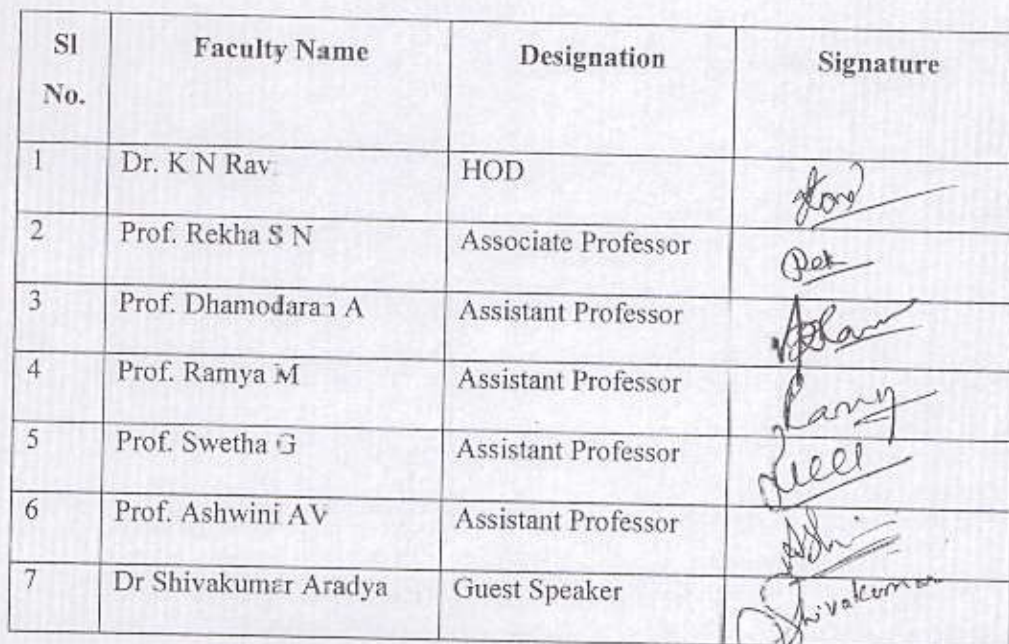 Sl No. Faculty Name Designation Signature
1 Dr. K N Rav HOD
2 Prof. Rekha S N Associate Professor
3 Prof. Dhamodaran A Assistant Professor
4 Prof. Ramya M Assistant Professor
5 Prof. Swetha G Assistant Professor
6 Prof. Ashwini AV Assistant Professor
7 Dr Shivakumar Aradya Guest Speaker Shivakumar